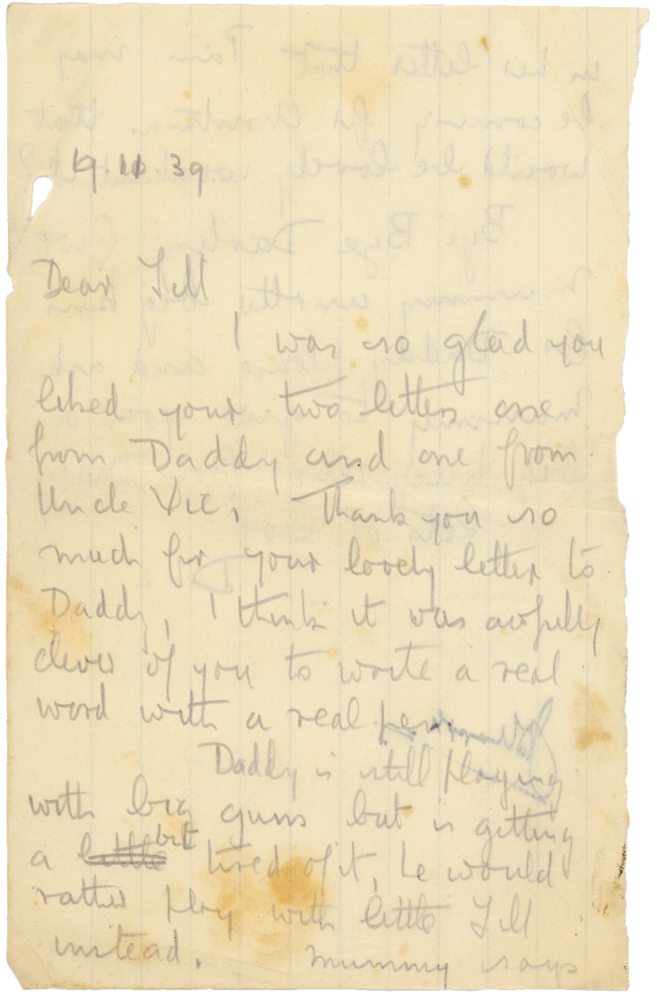 19.11.39
Dear Jill
I was so glad you
liked your two letters one
from Daddy and one from
Uncle Vic, Thank you so
much for your lovely letter to
Daddy, I think it was awfully
clever of you to write a real
word with a real pen.
Daddy is still playing
with big guns but is getting
a little bit tired of it, he would
rather play with little Jill
instead. Mummy says